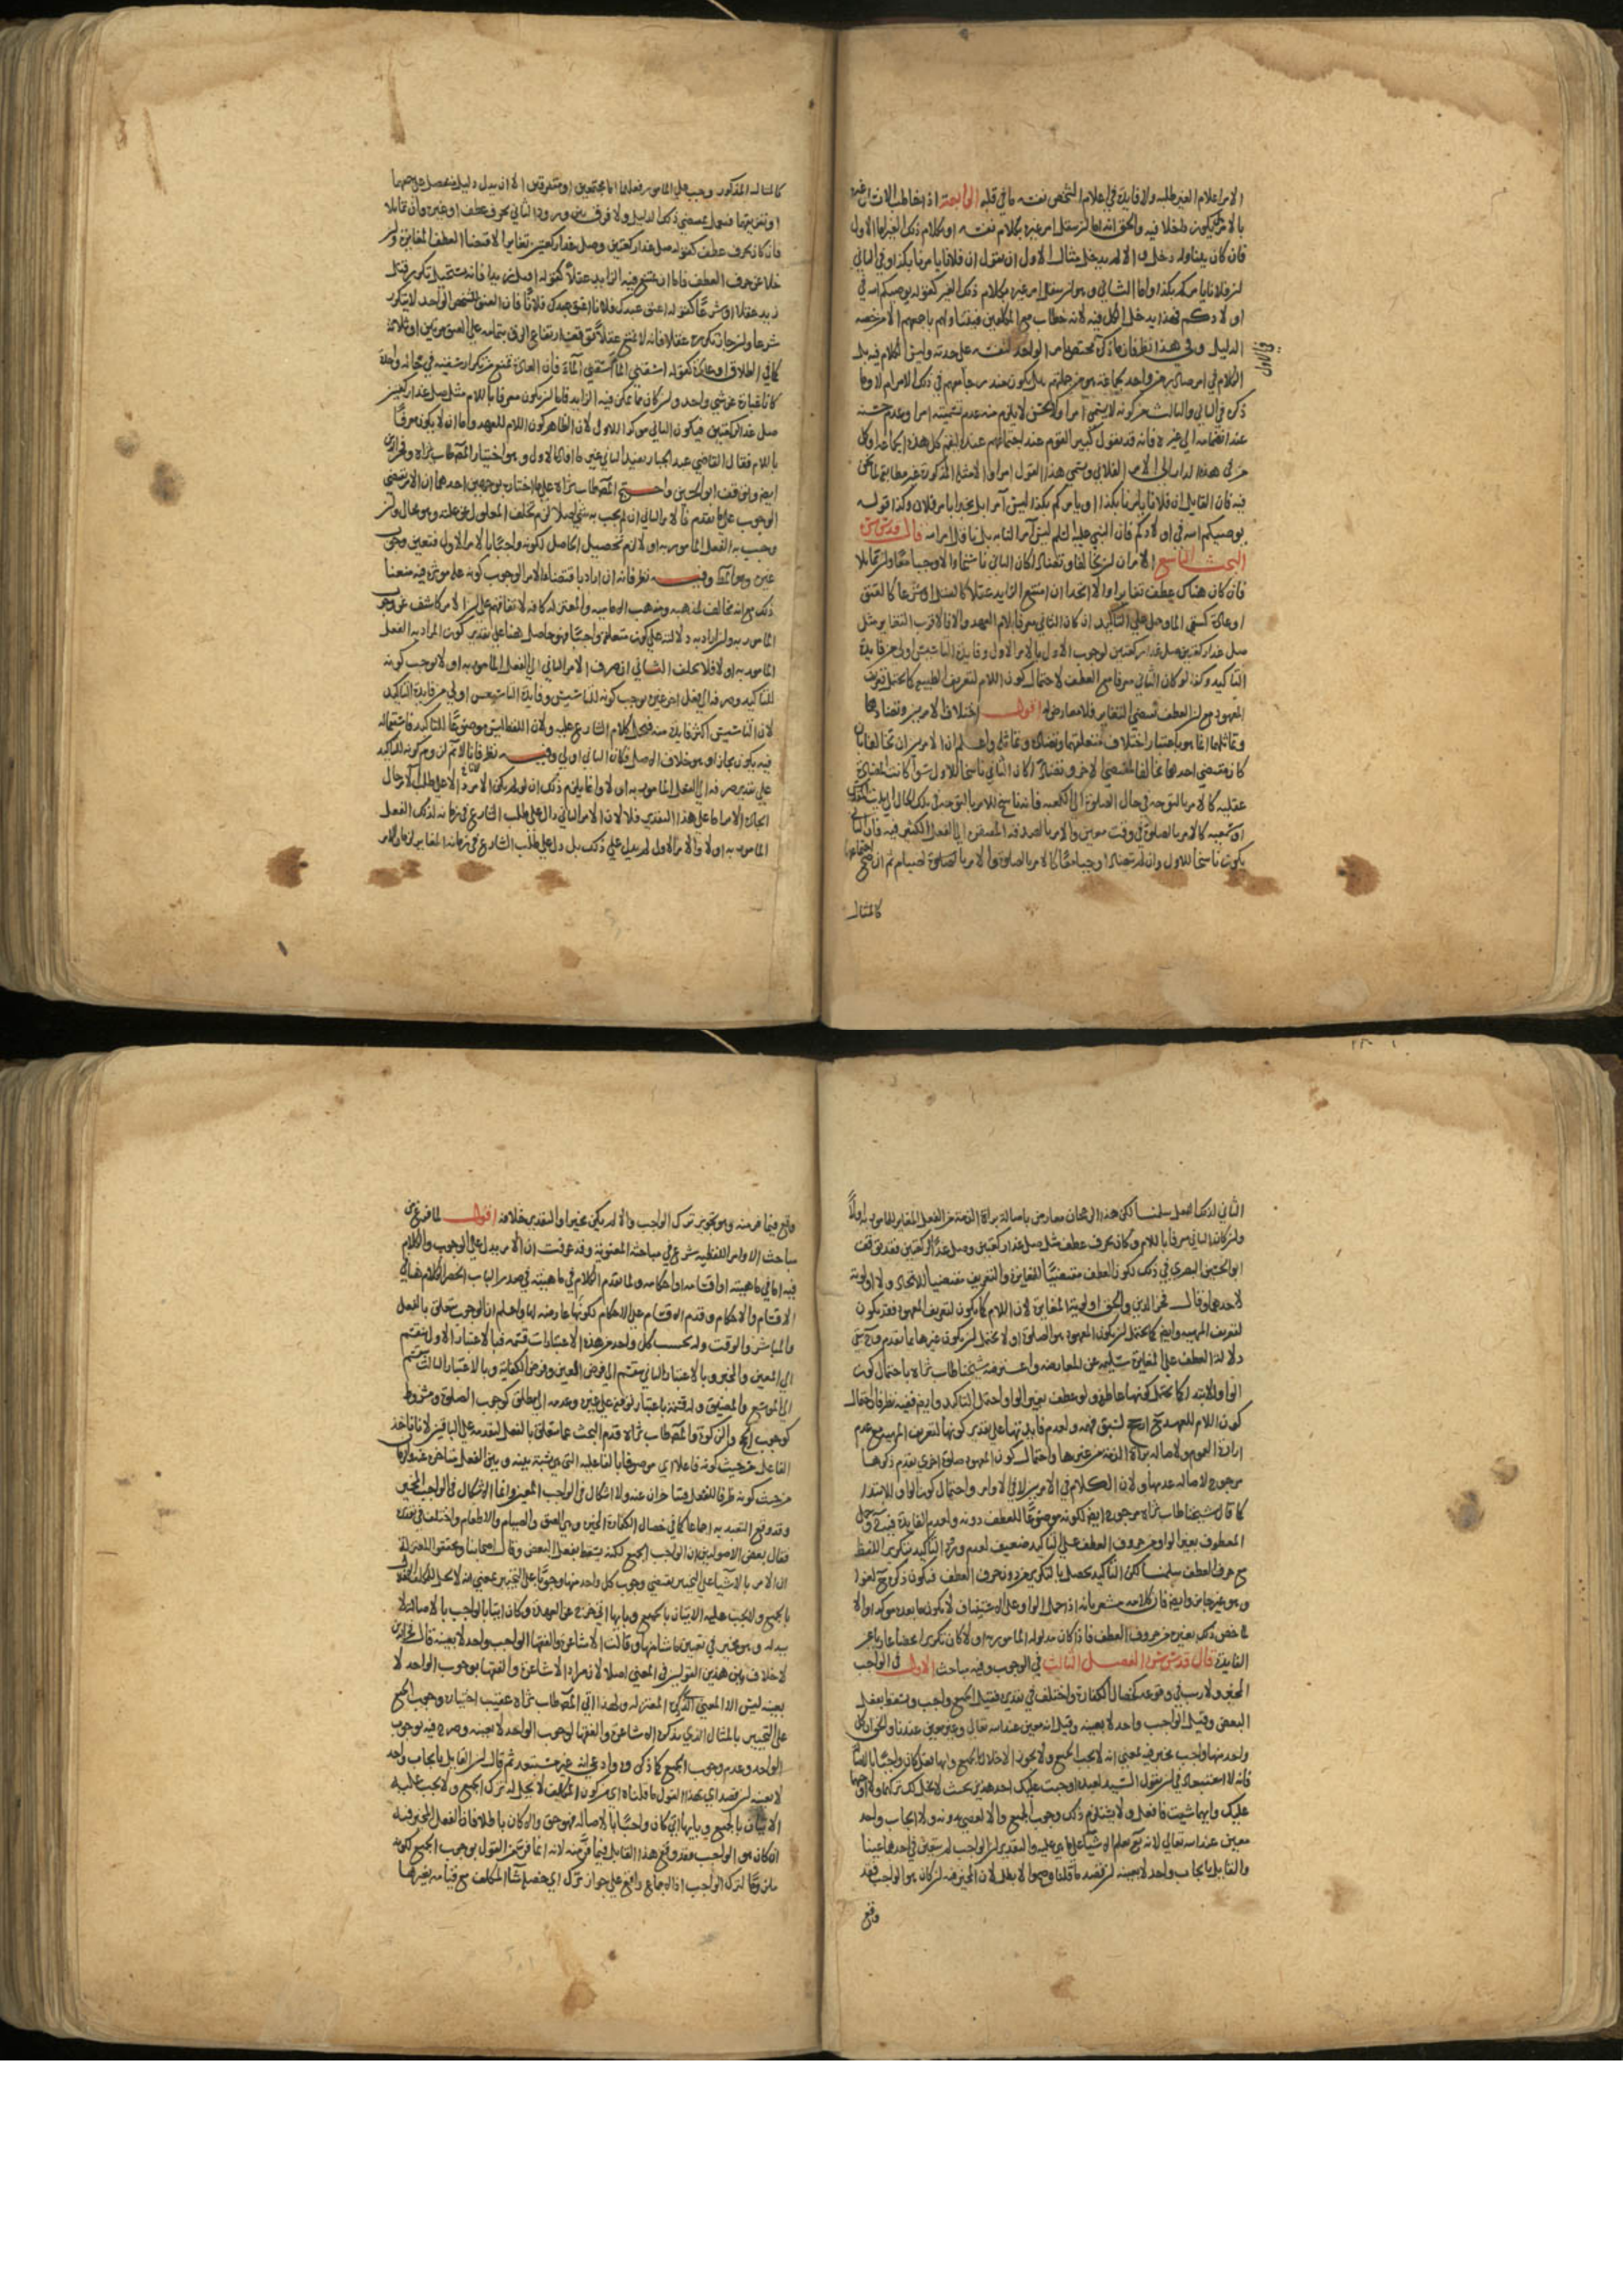 الامر اعلام الغير طلبه ولا فايدة في اعلام الشخص نفسه ما في قلبه الرابعة اذا خاطب الانسان غيره
بالامر هل يكون داخلا فيه والحق انه اما ان ينقل امر غيره بكلام نفسه او بكلام ذلك الغير اما الاول
فان كان يتناوله دخل والا لم يدخل مثال الاول ان يقول ان فلانا يامرنا بكذا وفي الثاني
ان فلانا يامركم بكذا واما الثاني وهو ان ينقل امر غيره بكلام ذلك الغير كقوله يوصيكم الله في
اولادكم فهذا يدخل الكل فيه لانه خطاب مع المكلفين فيتناولهم باجمعهم الا من خصه
الدليل وفي هذا نظر فان ما ذكر يختص بامر الواحد لنفسه على حدته وليس الكلام فيه بل
الكلام في امر صادر من واحد لجماعة هو من جملتهم
ذكره في الثاني والثالث من كونه لا يسمى امرا ولا يحسن لا يلزم منه عدم تسميته امرا وعدم حسنه
عند انضمامه الى غيره فانه قد يقول كبير القوم عند اجتماعهم
فيه فان القايل ان فلانا يامرنا بكذا او يامركم بكذا ليس آمرا بل مخبرا بامر فلان وكذا قوله
يوصيكم الله في اولادكم فان النبي عليه السلم ليس آمرا لنا به بل ناقل امر الله قال قدس سره
البحث التاسع الامران ان تخالفا وتضادا كان الثاني ناسخا والا وجبا معا وان تماثلا
فان كان هناك عطف تغايرا والا اتحدا ان امتنع التزايد عقلا كالقتل او شرعا كالعتق
او عادة كسقي الماء وحمل على التاكيد ان كان الثاني معرفا بلام العهد والا فالاقرب التغاير مثل
صل غدا ركعتين صل غدا ركعتين لوجوب الاول بالامر الاول وفايدة التاسيس اولى من فايدة
التاكيد وكذا لو كان الثاني معرفا مع العطف لاحتمال كون اللام لتعريف الطبيعة كما يحتمل تعريف
المعهود مع ان العطف يقتضي التغاير فلا معارض له اقول اختلاف الامرين وتضادهما
وتماثلهما انما هو باعتبار اختلاف متعلقهما وتضاده وتماثله واعلم ان الامرين ان تخالفا فان
كان مقتضى احدهما مخالفا لمقتضى الاخر وتضادا كان الثاني ناسخا للاول سواء كانت المضادة
عقلية كالامر بالتوجه في حال الصلوة الى الكعبة فانه ناسخ للامر بالتوجه في تلك الحال الى بيت المقدس
او شرعية كالامر بالصلوة في وقت معين والامر بالصدقة المفتقرة الى الفعل الكثير فيه فان الثاني
يكون ناسخا للاول وان لم يتضادا وجبا معا كالامر بالصلوة والامر بالصلوة والصيام ثم ان صح اجتماعهما
كالمثال
كالمثال المذكور وجب على المامور فعلهما اما مجتمعين او متفرقين الا ان يدل دليل منفصل على جمعهما
او تفريقهما فيعمل بمقتضى ذلك الدليل ولا فرق بين ورود الثاني بحرف عطف او غيره وان تماثلا
فان كان بحرف عطف كقوله صل غدا ركعتين وصل غدا ركعتين تغايرا لاقتضاء العطف المغايرة وان
خلا عن حرف العطف فاما ان يمتنع فيه التزايد عقلا كقوله اقتل زيدا اقتل زيدا فانه يستحيل تكرر قتل
زيد عقلا او شرعا كقوله اعتق عبدك فلانا اعتق عبدك فلانا فان العتق للشخص الواحد لا يتكرر
شرعا وان جاز تكرره عقلا فانه لا يمتنع عقلا توقف ارتفاع الرق بتمامه على العتق مرتين او ثلاثة
كما في الطلاق او عادة كقوله اسقني الماء اسقني الماء فان العادة تمنع من تكرار سقيه في حالة واحدة
كانا عبارة عن شي واحد وان كان مما يمكن فيه التزايد فاما ان يكون معرفا باللام مثل صل غدا ركعتين
صل غدا الركعتين فيكون الثاني موكدا للاول لان الظاهر كون اللام للعهد واما ان لا يكون معرفا
باللام فقال القاضي عبد الجبار يفيد الثاني غير ما افاده الاول وهو اختيار المص طاب ثراه وفخر الدين
ايضا وتوقف ابو الحسين واحتج المص طاب ثراه على ما اختاره بوجهين احدهما ان الامر يقتضي
الوجوب على ما تقدم فالامر الثاني ان لم يجب به شي اصلا لزم تخلف المعلول عن علته وهو محال وان
وجب به الفعل المامور به اولا لزم تحصيل الحاصل لكونه واجبا بالامر الاول فتعين وجوب
غيره وهو المط وفيه نظر فانه ان اراد باقتضاء الامر الوجوب كونه علة موثرة فيه منعنا
ذلك مع انه مخالف لمذهبه ومذهب الامامية والمعتزلة كافة لاتفاقهم على ان الامر كاشف عن وجوب
المامور به وان اراد به دلالته على كون متعلقه واجبا فهو حاصل هنا على تقدير كون المراد به الفعل
المامور به اولا فلا تخلف الثاني ان صرف الامر الثاني الى الفعل المامور به اولا يوجب كونه
للتاكيد وصرفه الى فعل اخر غيره يوجب كونه للتاسيس وفايدة التاسيس اولى من فايدة التاكيد
لان التاسيس اكثر فايدة منه فحمل كلام الشارع عليه ولان اللفظ ليس موضوعا للتاكيد فاستعماله
فيه يكون مجازا وهو خلاف الاصل فكان الثاني اولى وفيه نظر فانا لا نم لزوم كونه للتاكيد
على تقدير صرفه الى الفعل المامور به اولا وانما يلزم ذلك ان لو لم يكن الامر دالا على طلب
ايجاد الامر اما على هذا التقدير فلا لان الامر الثاني دال على طلب الشارع في زمانه لذلك الفعل
المامور به اولا والامر الاول لم يدل على ذلك بل دل على طلب الشارع في زمانه المغاير لزمان الامر
الثاني لذلك الفعل سلمنا لكن هذا الرجحان معارض باصالة براة الذمة من الفعل المغاير للمامور به اولا
وان كان الثاني معرفا باللام وكان بحرف عطف مثل صل غدا ركعتين وصل غدا الركعتين فقد توقف
ابو الحسين البصري في ذلك لكون العطف مقتضيا للمغايرة والتعريف مقتضيا للاتحاد ولا اولوية
لاحدهما وقال فخر الدين والحق اولوية المغايرة لان اللام كما يكون لتعريف المعهود فقد يكون
لتعريف المهية وايضا كما يحتمل ان يكون المعهود هو الصلوة اولا يحتمل ان يكون غيرها مما تقدم وح تبقى
دلالة العطف على المغايرة سليمة عن المعارضة واعترضه شيخنا طاب ثراه باحتمال كون
الواو للابتداء كما يحتمل كونها عاطفة ولو عطف بغير الواو احتمل التاكيد وايضا ففيه نظر فان احتمال
كون اللام للعهد ح ارجح لسبق فهمه ولعدم فايدتها على تقدير كونها لتعريف المهية مع عدم
ارادة العموم ولاصالة براة الذمة من غيرها واحتمال كون المعهود صلوة اخرى تقدم ذكرها
مرجوح لاصالة عدمها ولان الكلام في الامرين لا في الاوامر واحتمال كون الواو للابتداء
كما قال شيخنا طاب ثراه مرجوح ايضا لكونه موضوعا للعطف دونه ولعدم الفايدة فيه ح وحمل
المعطوف بغير الواو من حروف العطف على التاكيد ضعيف لعدم ورود التاكيد بتكرير اللفظ
مع حرف العطف سلمنا لكن التاكيد يحصل بالتكرير من دون حرف العطف فيكون ذكره ح لغوا
وهو غير جايز وايضا فان كلامه مشعر بانه اذا حمل الواو على الاستيناف لا يكون ما بعده موكدا والا
لما خص ذلك بغيره من حروف العطف فاذا كان مدلوله المامور به اولا كان تكريرا محضا عاريا عن
الفايدة قال قدس سره الفصل الثالث في الوجوب وفيه مباحث الاول في الواجب
المخير ولا ريب في وقوعه كخصال الكفارة واختلف في تقديره فقيل الجميع واجب ويسقط بفعل
البعض وقيل الواجب واحد لا بعينه وقيل انه معين عند الله تعالى وغير معين عندنا والحق ان كل
واحد منها واجب مخير فيه بمعنى انه لا يجب الجميع ولا يجوز الاخلال بالجميع وايها فعل كان واجبا بالاصالة
فانه لا استبعاد في ان يقول السيد لعبده اوجبت عليك احد هذين بحيث لا يحل لك تركهما ولا اوجبهما
عليك وايهما شيت فافعل ولا يستلزم ذلك وجوب الجميع والا لعصى بدونه ولا ايجاب واحد
معين عند الله تعالى لانه تع يعلم الاشيا على ما هي عليه والتقدير ان الواجب لم يتعين في احدهما عينا
والقايل بايجاب واحد لا بعينه ان قصد ما قلناه فهو حق والا بطل لان المخير فيه ان كان هو الواجب فقد
وقع
وقع فيما فر منه وهو تجويز ترك الواجب والا لم يكن مخيرا والتقدير خلافه اقول لما فرغ من
مباحث الاوامر اللفظية شرع في مباحثه المعنوية وقد عرفت ان الامر يدل على الوجوب والكلام
فيه اما في ماهيته او اقسامه او احكامه ولما تقدم الكلام في ماهيته في صدر الباب انحصر الكلام هنا في
الاقسام والاحكام وقدم الاقسام على الاحكام لكونها عارضة لها واعلم ان الوجوب يتعلق بالفعل
والمباشر والوقت وله بحسب كل واحد من هذه الاعتبارات قسمة فبالاعتبار الاول ينقسم
الى المعين والمخير وبالاعتبار الثاني ينقسم الى فرض العين وفرض الكفاية وبالاعتبار الثالث ينقسم
الى الموسع والمضيق وله قسمة باعتبار توقفه على غيره وعدمه الى مطلق كوجوب الصلوة ومشروط
كوجوب الحج والزكوة والمص طاب ثراه قدم البحث عما يتعلق بالفعل لتقدمه على الباقين لانا ناخذ
الفاعل من حيث كونه فاعلا اي موصوفا بالفاعلية التي هي نسبة بينه وبين الفعل متاخرة عنه
من حيث كونه ظرفا للفعل فيتاخران عنه ولا اشكال في الواجب المعين وانما الاشكال في الواجب المخير
وقد وقع التعبد به اجماعا كما في خصال الكفارة المخيرة وهي العتق والصيام والاطعام واختلف في تفسيره
فقال بعض الاصوليين ان الواجب الجميع لكنه يسقط بفعل البعض وقال اصحابنا ومحققوا المعتزلة
ان الامر بالاشيا على التخيير يقتضي وجوب كل واحد منها وجوبا على التخيير بمعنى انه لا يحل للمكلف الاخلال
بالجميع ولا يجب عليه الاتيان بالجميع وبايها اتى خرج عن العهدة وكان اتيا بالواجب بالاصالة لا
ببدله وهو مخير في تعيين ما شا منها وقالت الاشاعرة والفقها الواجب واحد لا بعينه قال فخر الدين
لا خلاف بين هذين القولين في المعنى اصلا لان مراد الاشاعرة والفقها بوجوب الواحد لا
بعينه ليس الا المعنى الذي ذكره المعتزلة ولهذا اتى المص طاب ثراه عقيب اختياره وجوب الجميع
على التخيير بالمثال الذي يذكره الاشاعرة والفقها لوجوب الواحد لا بعينه وصرح فيه بوجوب
الواحد وعدم وجوب الجميع كما ذكروه وادعى انه غير مستبعد ثم قال ان القايل بايجاب واحد
لا بعينه ان قصد اي بهذا القول ما قلناه اي من كون المكلف لا يحل له ترك الجميع ولا يجب عليه
الاتيان بالجميع وبايها اتى كان واجبا بالاصالة فهو حق والا كان باطلا فان الفعل المخير فيه
ان كان هو الواجب فقد وقع هذا القايل فيما فر منه لانه انما فر من القول بوجوب الجميع لكونه
ملزوما لترك الواجب اذ الاجماع واقع على جواز ترك اي خصلة شا المكلف مع قيامه بغيرها